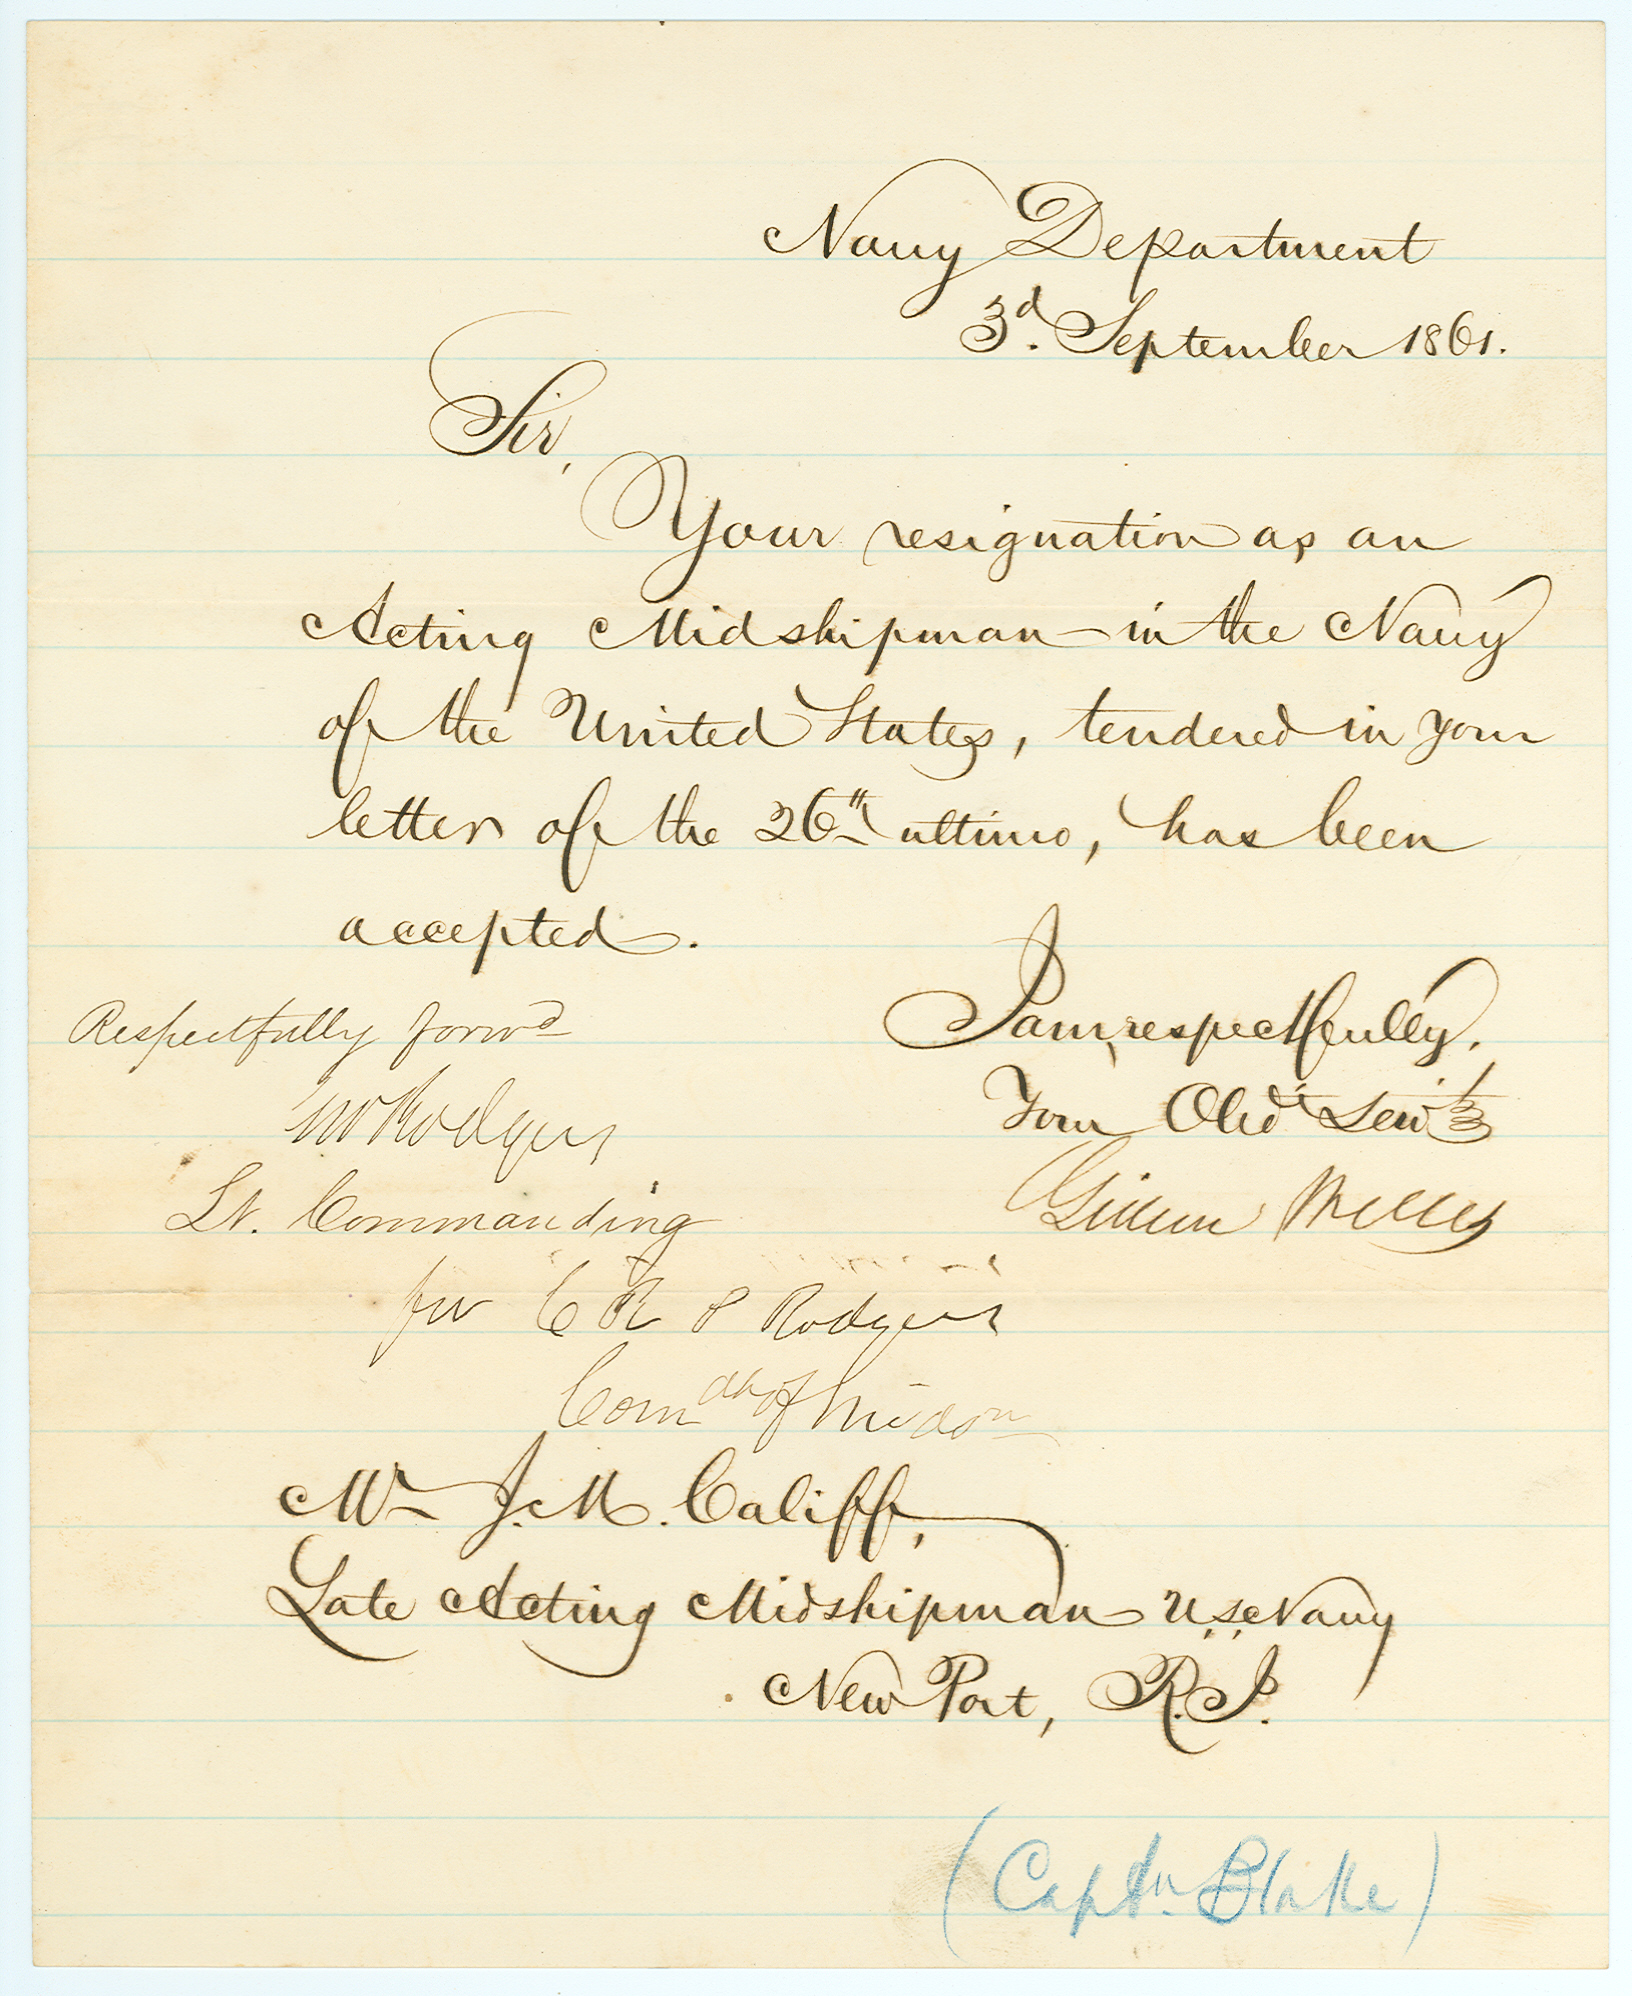 Navy Department
3d. September 1861.
Sir,
Your resignation as an
Acting Midshipman in the Navy
of the United States, tendered in your
letter of the 26th ultimo, has been
accepted.
I am, respectfully,
Your Obdt. Servt.
Gideon Welles
Respectfully forwd
Rodgers
Lt. Commanding
for C R P Rodgers
Comdt of Midsn
Mr J. M. Califf,
Late Acting Midshipman U.S. Navy
New Port, R.I.
(Captn. Blake)